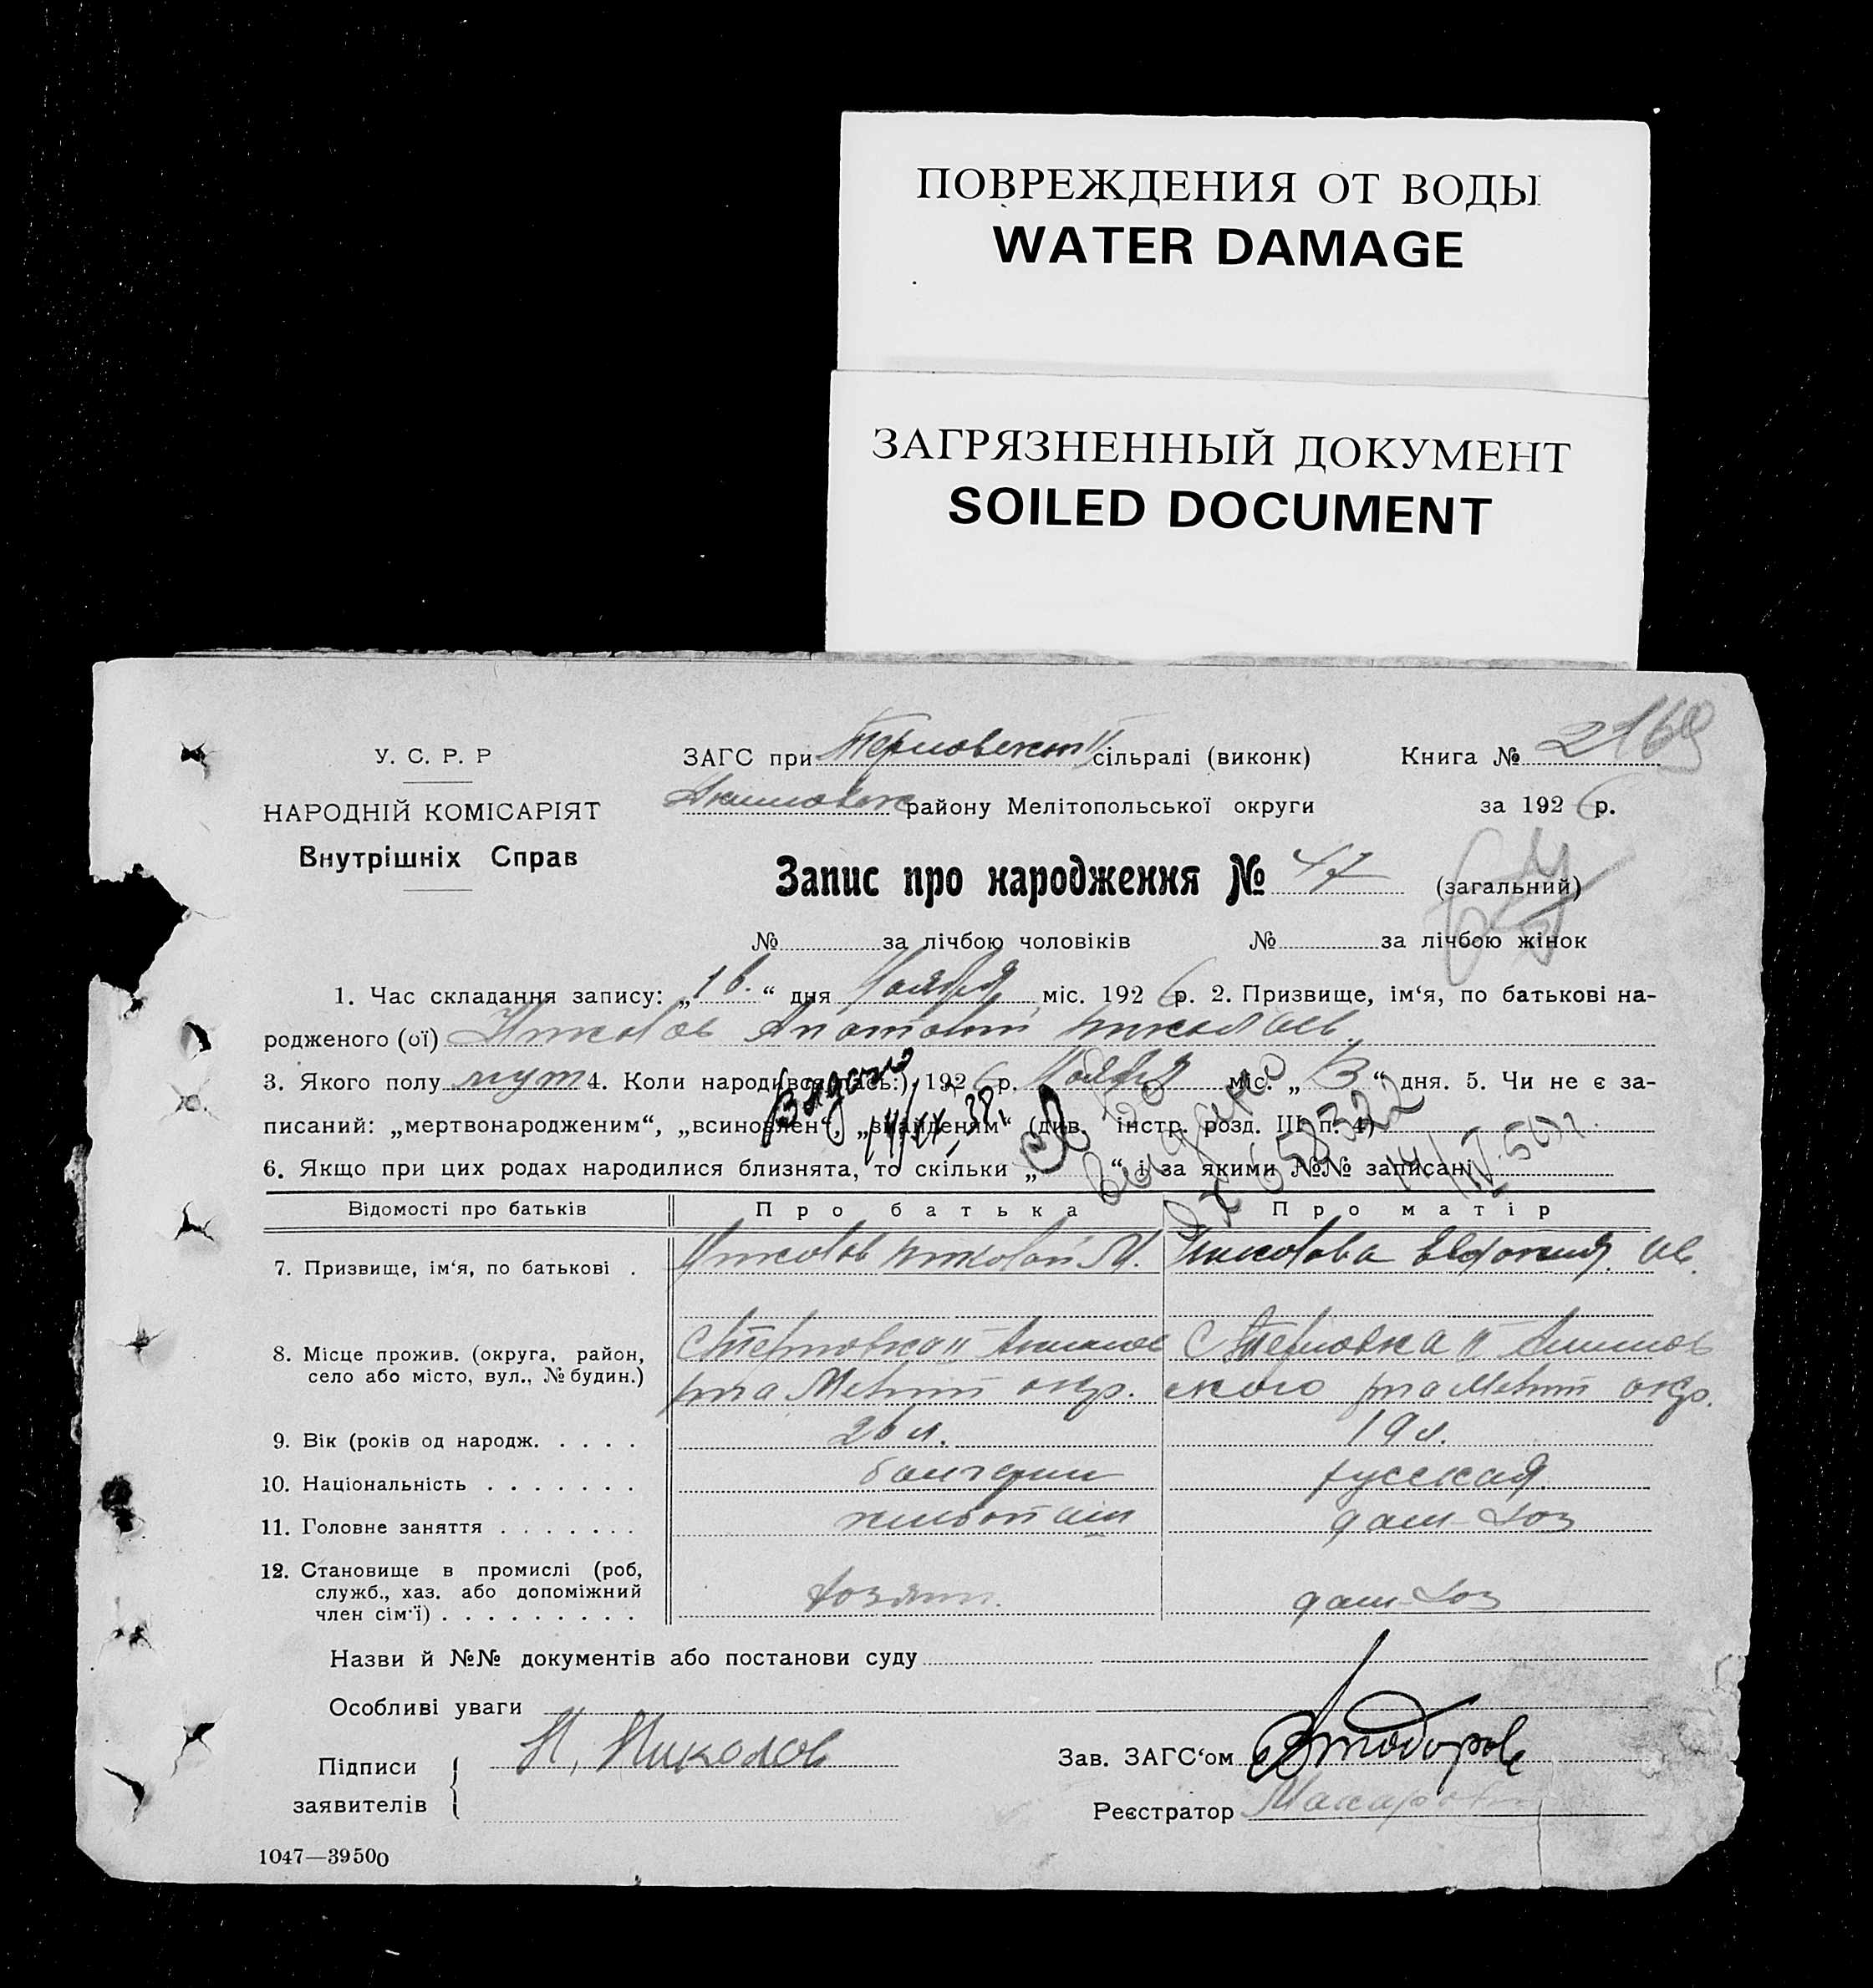 ПОВРЕЖДЕНИЯ ОТ ВОДЫ
WATER DAMAGE
ЗАГРЯЗНЕННЫЙ ДОКУМЕНТ
SOILED DOCUMENT
У. С. Р. Р
НАРОДНІЙ КОМІСАРІЯТ
Внутрішніх Справ
ЗАГС при Терновскот II сільраді (виконк) Книга № 2
169
району Мелітопольської округи за 1926 р.
Запис про народження № 47 (загальний)
№ за лічбою чоловіків № за лічбою жінок
1. Час складання запису: „16.“ дня Ноября міс. 1926 р. 2. Призвище, ім‘я, по батькові на-
родженого (ої) Николов Анатолий Николаев.
3. Якого полу муж 4. Коли народився (лась:) 1926 р. Ноября міс. „13“ дня. 5. Чи не є за-
писаний: „мертвонародженим“, „всиновлен“, „знайденям“ (див. інстр. розд. III п. 4)
6. Якщо при цих родах народилися близнята, то скільки „ “ і за якими №№ записані
Видано
14/IX 38.
658322
14/IV-50г.
Відомості про батьків Про батька Про матір
7. Призвище, ім‘я, по батькові . Николов Николай И. Николова Евдокия. Ив.
8. Місце прожив. (округа, район, село або місто, вул., № будин.) с Терновка II Акимов р-на Мелит окр. с Терновка II Акимов ского р-на Мелит окр.
9. Вік (років од народж. . . . . 26 л. 19 л.
10. Національність . . . . . . . болгарин русская
11. Головне заняття . . . . . . . дом-хоз
12. Становище в промислі (роб, служб., хаз. або допоміжний член сім‘ї) . . . . . . . . . хозяин. дом-хоз
Назви й №№ документів або постанови суду
Особливі уваги
Підписи
заявителів
Н. Николов
Зав. ЗАГС‘ом
Реєстратор
1047—39500